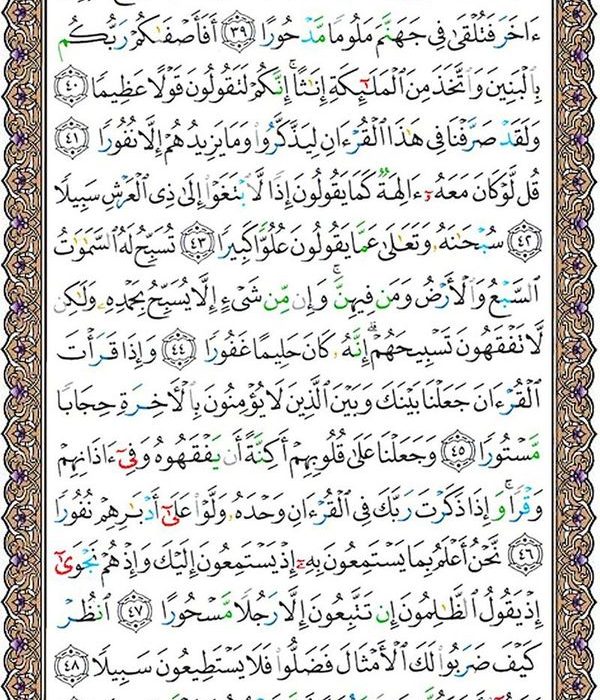 ءَاخَرَ فَتُلْقَىٰ فِى جَهَنَّمَ مَلُومًا مَّدْحُورًا ﴿٣٩﴾ أَفَأَصْفَىٰكُمْ رَبُّكُم
بِٱلْبَنِينَ وَٱتَّخَذَ مِنَ ٱلْمَلَـٰٓئِكَةِ إِنَـٰثًا ۚ إِنَّكُمْ لَتَقُولُونَ قَوْلًا عَظِيمًا ﴿٤٠﴾
وَلَقَدْ صَرَّفْنَا فِى هَـٰذَا ٱلْقُرْءَانِ لِيَذَّكَّرُوا۟ وَمَا يَزِيدُهُمْ إِلَّا نُفُورًا ﴿٤١﴾
قُل لَّوْ كَانَ مَعَهُۥٓ ءَالِهَةٌ كَمَا يَقُولُونَ إِذًا لَّٱبْتَغَوْا۟ إِلَىٰ ذِى ٱلْعَرْشِ سَبِيلًا
﴿٤٢﴾ سُبْحَـٰنَهُۥ وَتَعَـٰلَىٰ عَمَّا يَقُولُونَ عُلُوًّا كَبِيرًا ﴿٤٣﴾ تُسَبِّحُ لَهُ ٱلسَّمَـٰوَٰتُ
ٱلسَّبْعُ وَٱلْأَرْضُ وَمَن فِيهِنَّ ۚ وَإِن مِّن شَىْءٍ إِلَّا يُسَبِّحُ بِحَمْدِهِۦ وَلَـٰكِن
لَّا تَفْقَهُونَ تَسْبِيحَهُمْ ۗ إِنَّهُۥ كَانَ حَلِيمًا غَفُورًا ﴿٤٤﴾ وَإِذَا قَرَأْتَ
ٱلْقُرْءَانَ جَعَلْنَا بَيْنَكَ وَبَيْنَ ٱلَّذِينَ لَا يُؤْمِنُونَ بِٱلْـَٔاخِرَةِ حِجَابًا
مَّسْتُورًا ﴿٤٥﴾ وَجَعَلْنَا عَلَىٰ قُلُوبِهِمْ أَكِنَّةً أَن يَفْقَهُوهُ وَفِىٓ ءَاذَانِهِمْ
وَقْرًا ۚ وَإِذَا ذَكَرْتَ رَبَّكَ فِى ٱلْقُرْءَانِ وَحْدَهُۥ وَلَّوْا۟ عَلَىٰٓ أَدْبَـٰرِهِمْ نُفُورًا
﴿٤٦﴾ نَّحْنُ أَعْلَمُ بِمَا يَسْتَمِعُونَ بِهِۦٓ إِذْ يَسْتَمِعُونَ إِلَيْكَ وَإِذْ هُمْ نَجْوَىٰٓ
إِذْ يَقُولُ ٱلظَّـٰلِمُونَ إِن تَتَّبِعُونَ إِلَّا رَجُلًا مَّسْحُورًا ﴿٤٧﴾ ٱنظُرْ
كَيْفَ ضَرَبُوا۟ لَكَ ٱلْأَمْثَالَ فَضَلُّوا۟ فَلَا يَسْتَطِيعُونَ سَبِيلًا ﴿٤٨﴾